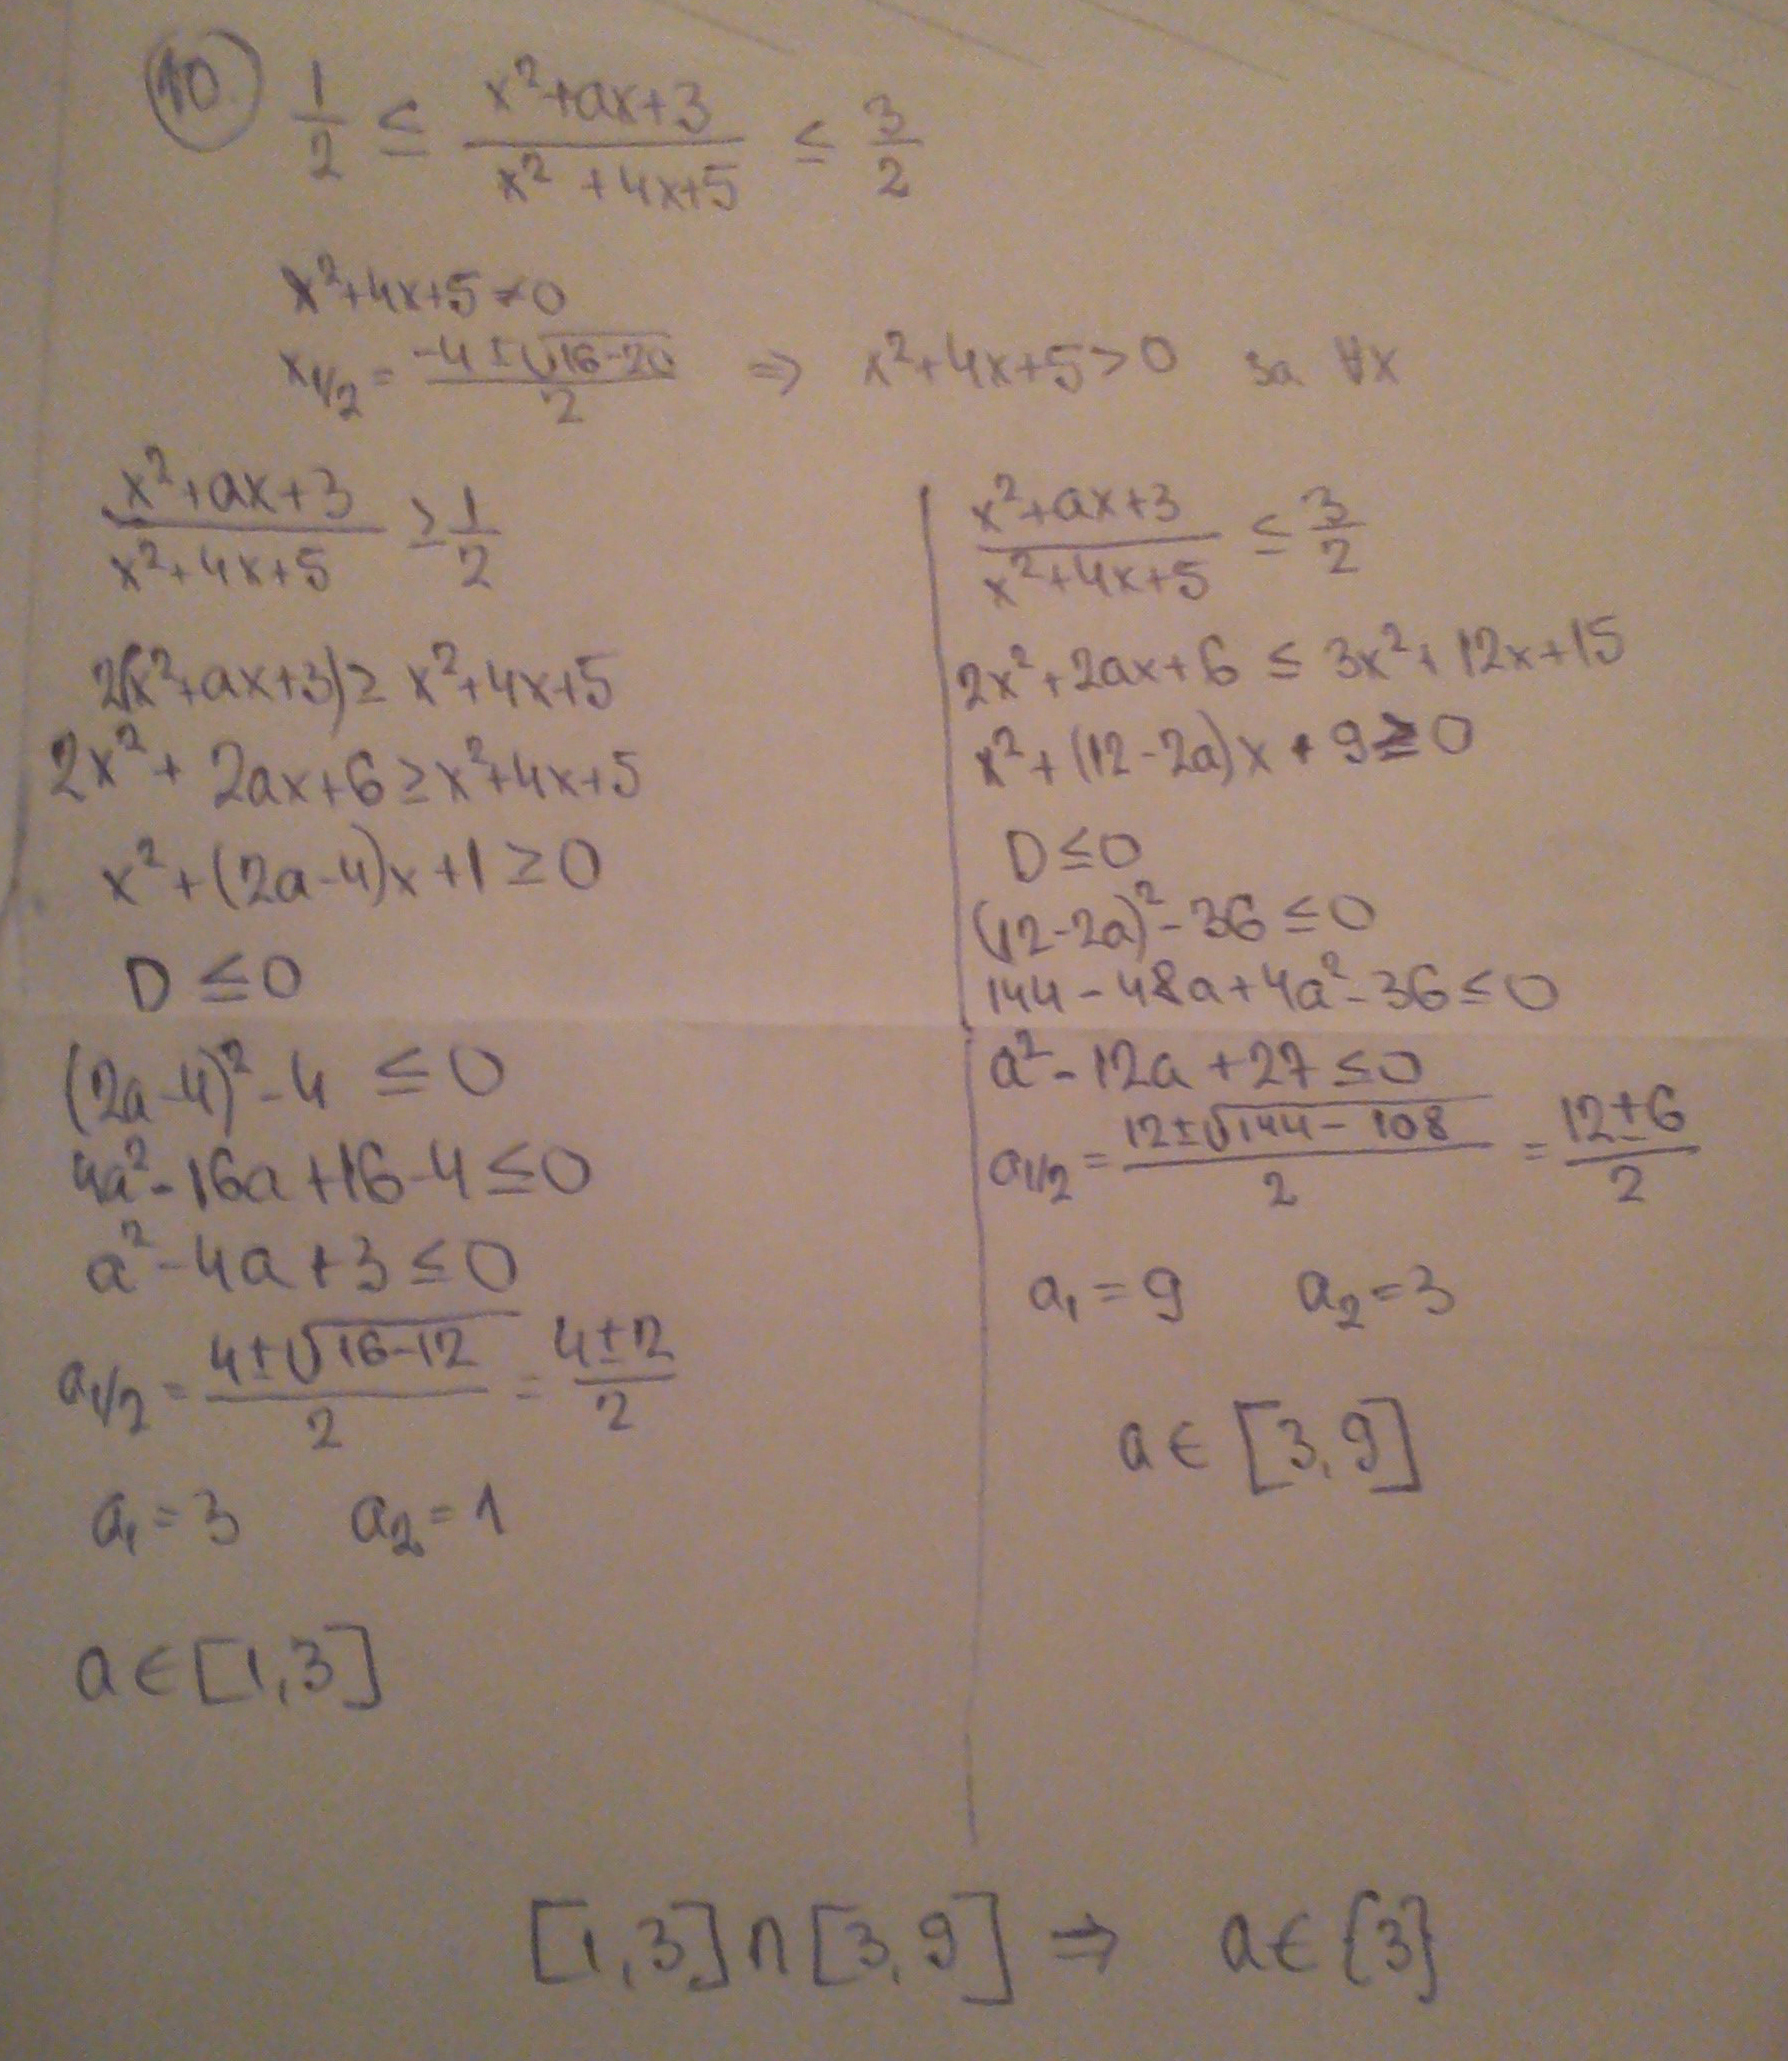 10. 1/2 ≤ (x²+ax+3)/(x²+4x+5) ≤ 3/2
x²+4x+5≠0
x₁/₂ = (-4±√(16-20))/2 ⇒ x²+4x+5>0 за ∀x
(x²+ax+3)/(x²+4x+5) ≥ 1/2
2(x²+ax+3) ≥ x²+4x+5
2x²+2ax+6 ≥ x²+4x+5
x²+(2a-4)x+1 ≥ 0
D ≤ 0
(2a-4)²-4 ≤ 0
4a²-16a+16-4 ≤ 0
a²-4a+3 ≤ 0
a₁/₂ = (4±√(16-12))/2 = (4±2)/2
a₁=3 a₂=1
a∈[1,3]
(x²+ax+3)/(x²+4x+5) ≤ 3/2
2x²+2ax+6 ≤ 3x²+12x+15
x²+(12-2a)x+9 ≥ 0
D ≤ 0
(12-2a)²-36 ≤ 0
144-48a+4a²-36 ≤ 0
a²-12a+27 ≤ 0
a₁/₂ = (12±√(144-108))/2 = (12±6)/2
a₁=9 a₂=3
a∈[3,9]
[1,3]∩[3,9] ⇒ a∈{3}